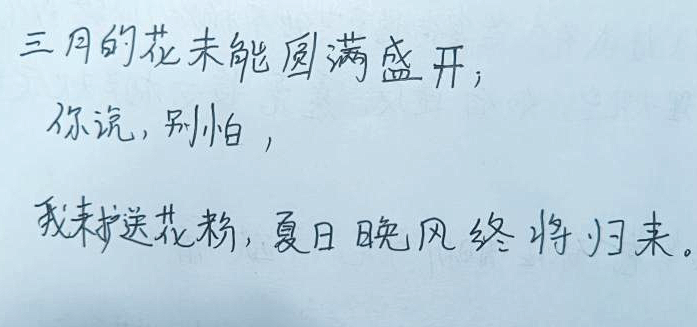 三月的花未能圆满盛开；
你说，别怕，
我来护送花粉，夏日晚风终将归来。